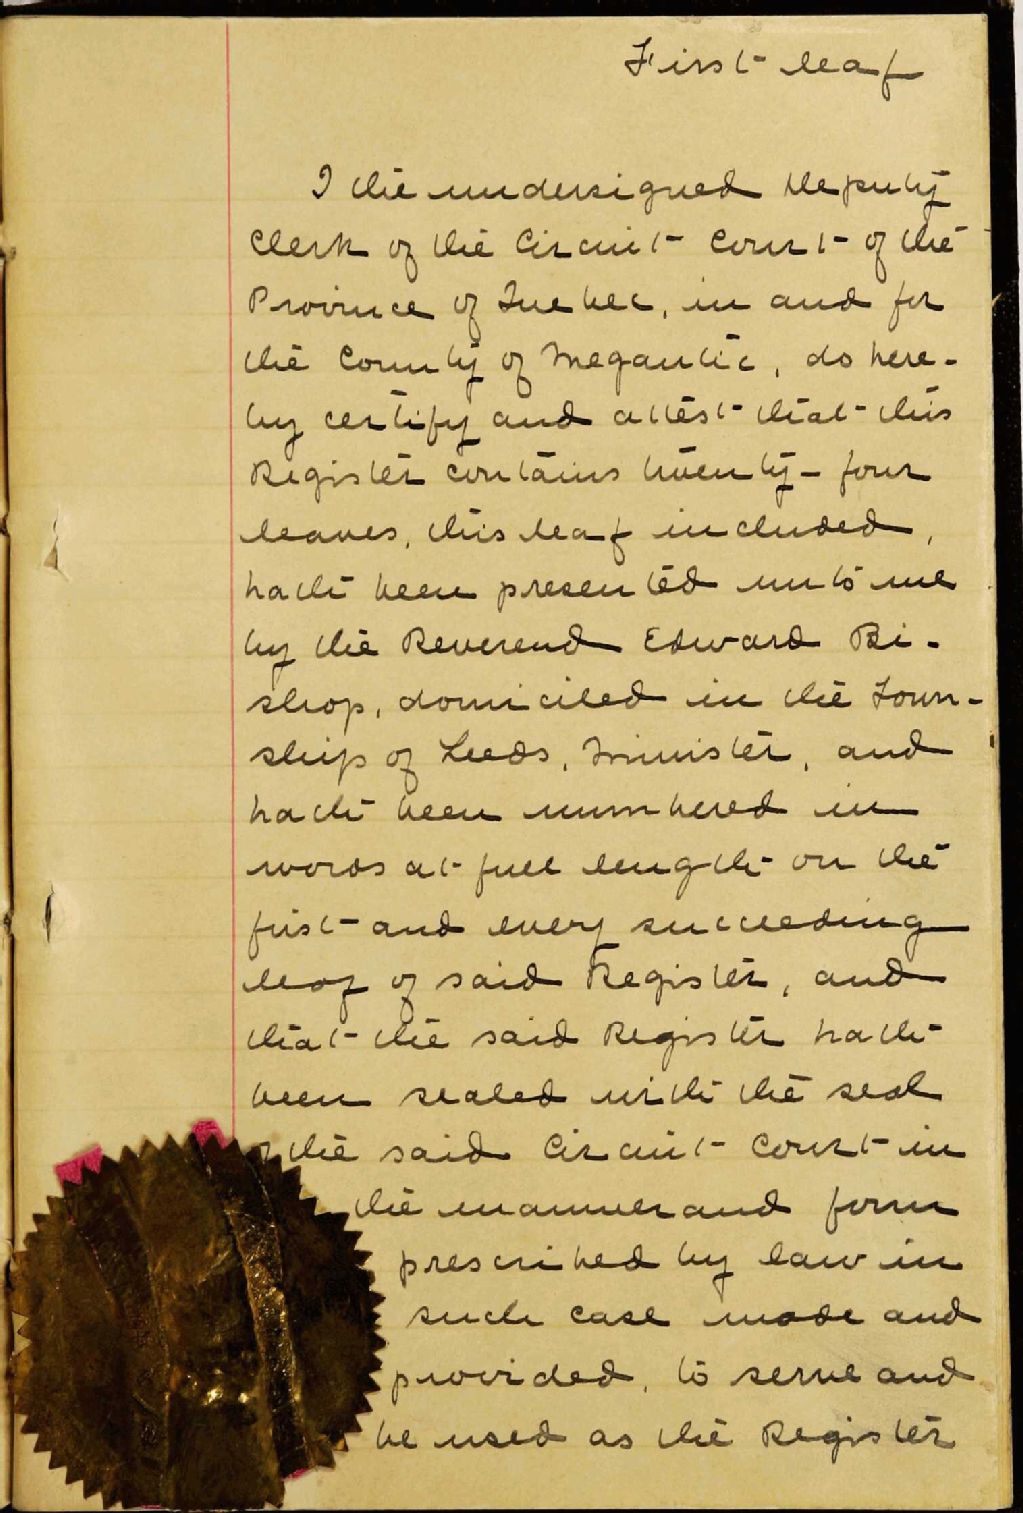 First leaf
I the undersigned Deputy
Clerk of the Circuit Court of the
Province of Quebec, in and for
the County of Megantic, do here-
by certify and attest that this
Register contains twenty-four
leaves, this leaf included,
hath been presented unto me
by the Reverend Edward Bi-
shop, domiciled in the Town-
ship of Leeds, Minister, and
hath been numbered in
words at full length on the
first and every succeeding
leaf of said Register, and
that the said Register hath
been sealed with the seal
of the said Circuit Court in
the manner and form
prescribed by law in
such case made and
provided, to serve and
be used as the Register